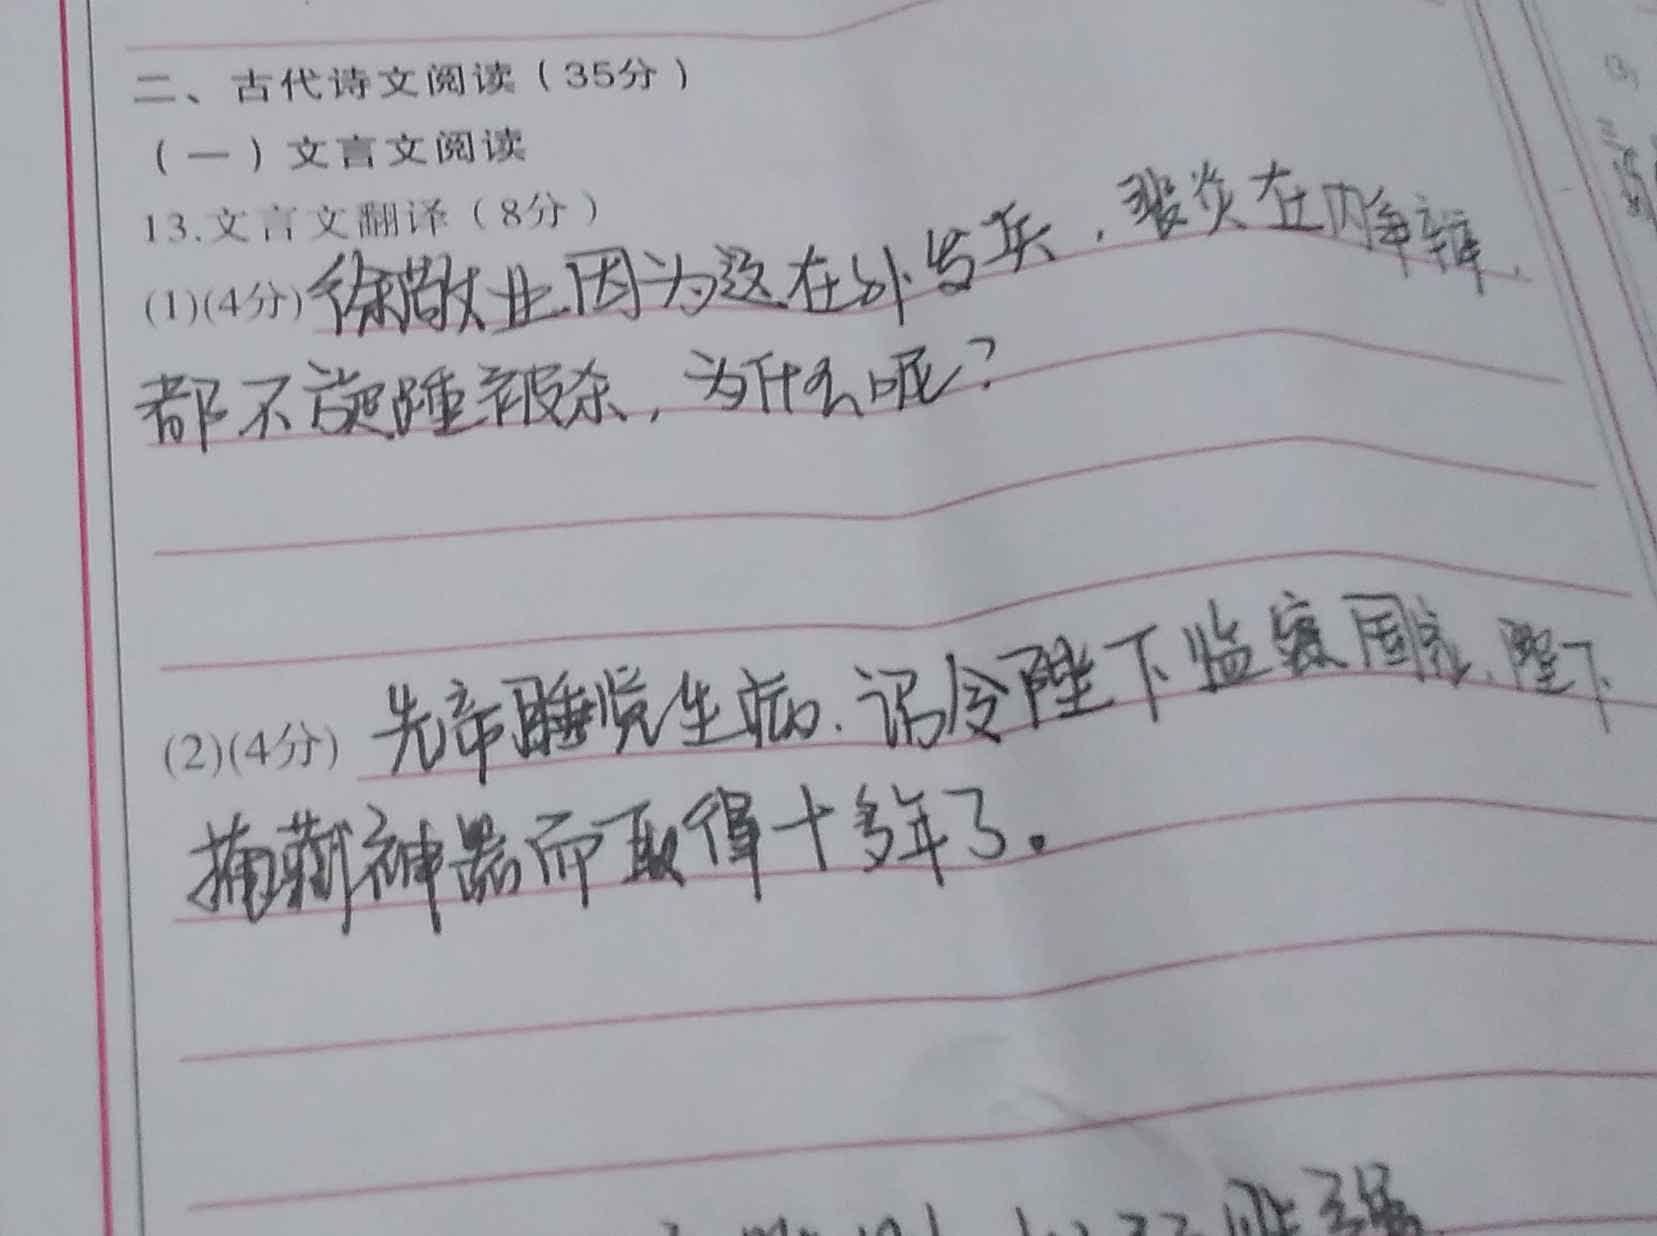 二、古代诗文阅读（35分）
（一）文言文阅读
13.文言文翻译（8分）
(1)(4分)徐敬业因为这在外发兵，裴炎在内争辩，
都不旋踵被杀，为什么呢？
(2)(4分)先帝睡觉生病，诏令陛下监察国家，陛下
掩藏神器而取得十多年了。